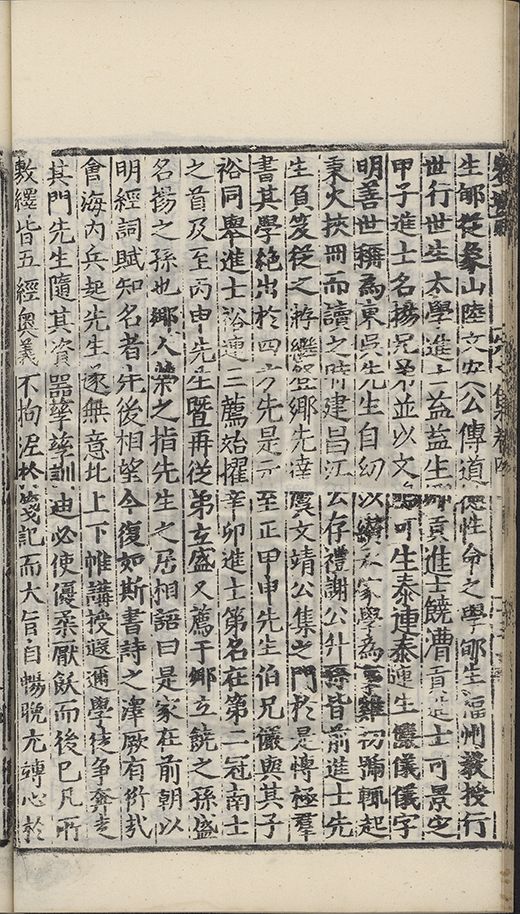 生邹從象山陸文安公傳道德性命之學邹生福州教授行
世行世生太學進士益益生鄉貢進士饒漕貢進士可景定
甲子進士名揚兄弟並以文鳴可生泰連泰連生儼儀儀字
明善世稱為東吳先生自幼以纘私家學為事雞初號輒起
秉火挾冊而讀之時建昌江公存禮謝公升孫皆前進士先
生負笈從之游繼登鄉先達虞文靖公集之門於是慱極羣
書其學絶出於四方先是元至正甲申先生伯兄儼與其子
裕同舉進士裕連三薦始擢辛卯進士第名在第二冠南士
之首及至丙申先生暨再從弟立盛又薦于鄉立饒之孫盛
名揚之孫也鄉人榮之指先生之居相語曰是家在前朝以
明經詞賦知名者先後相望今復如斯書詩之澤厥有所哉
會海內兵起先生遂無意北上下帷講授遐邇學徒争奔走
其門先生隨其資器孳孳訓迪必使優柔厭飫而後已凡所
敷繹皆五經奥義不拘泥於箋記而大旨自暢晚尤轉心於